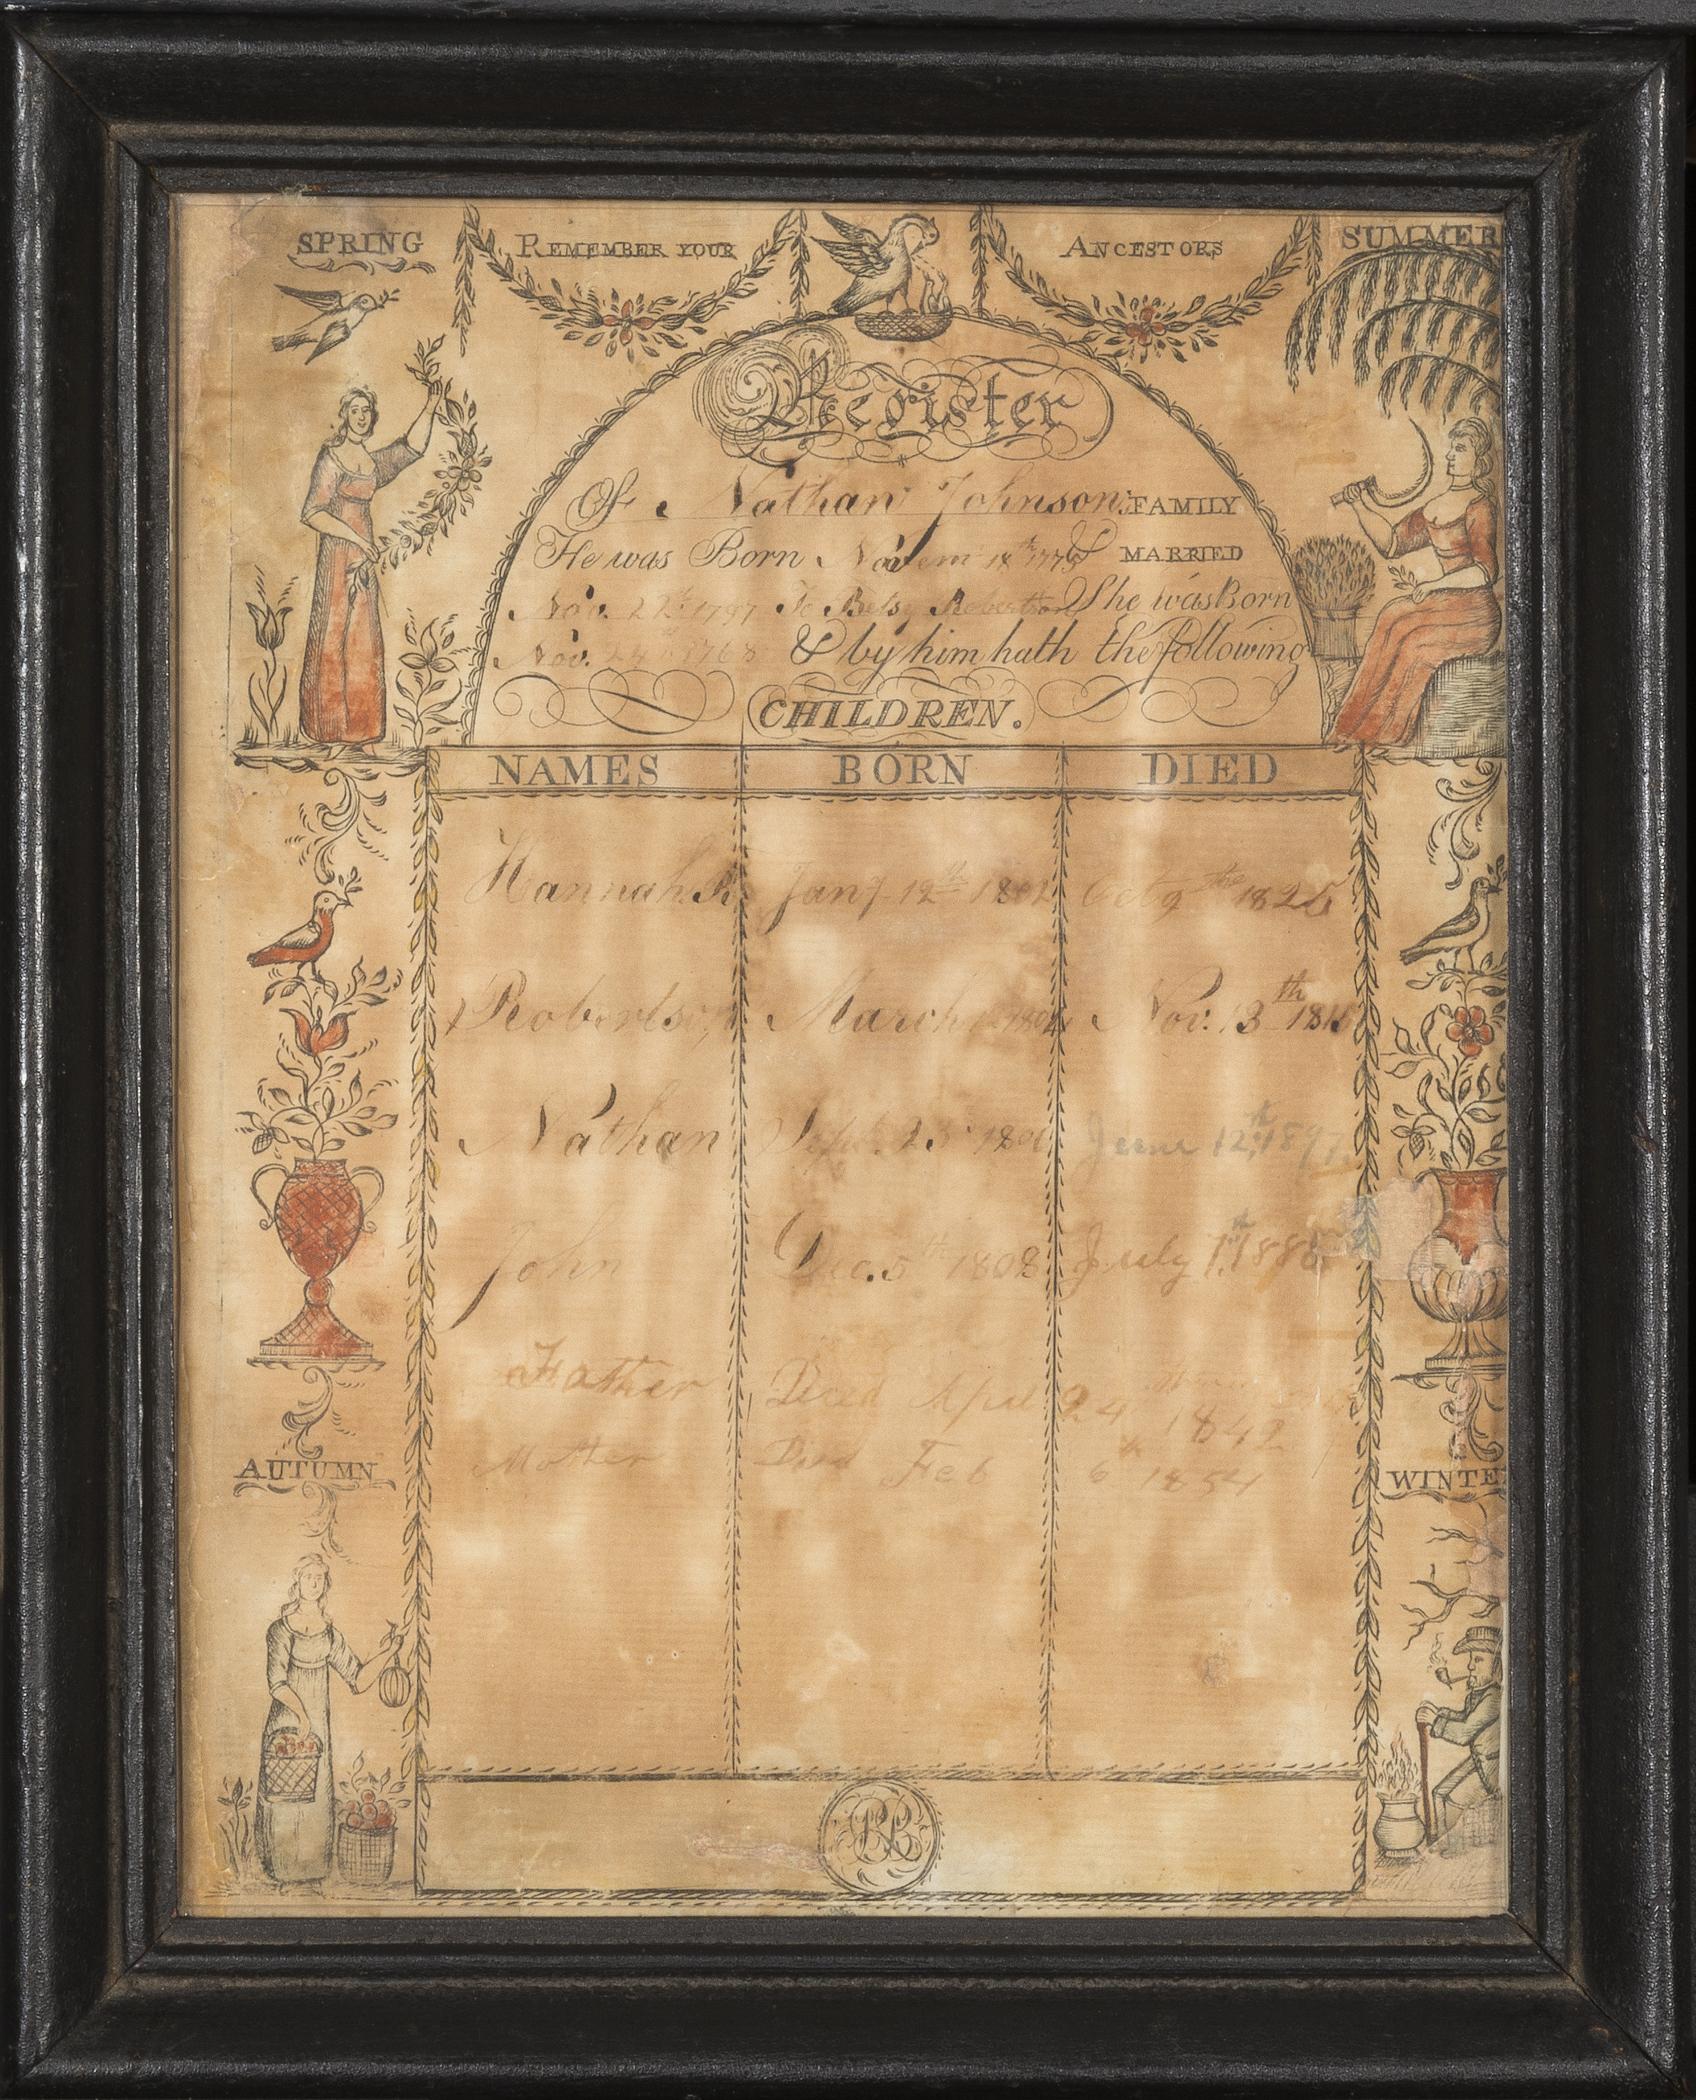 SPRING
REMEMBER YOUR
ANCESTORS
SUMMER
Register
Of Nathan Johnson FAMILY
He was Born Novem 18th & MARRIED
Nov. 22d 1797 To Betsy Robertson She was Born
Nov. 24th 1768 & by him hath the following
CHILDREN.
NAMES BORN DIED
Hannah R Jany 12th 1802 Oct 9th
Robertson March Nov. 13th
Nathan Sept. 25 June 12th
John Dec. 5th 1808 July 1st
Father Died April 24 1842
Mother Died Feb 6th 1854
AUTUMN
WINTE